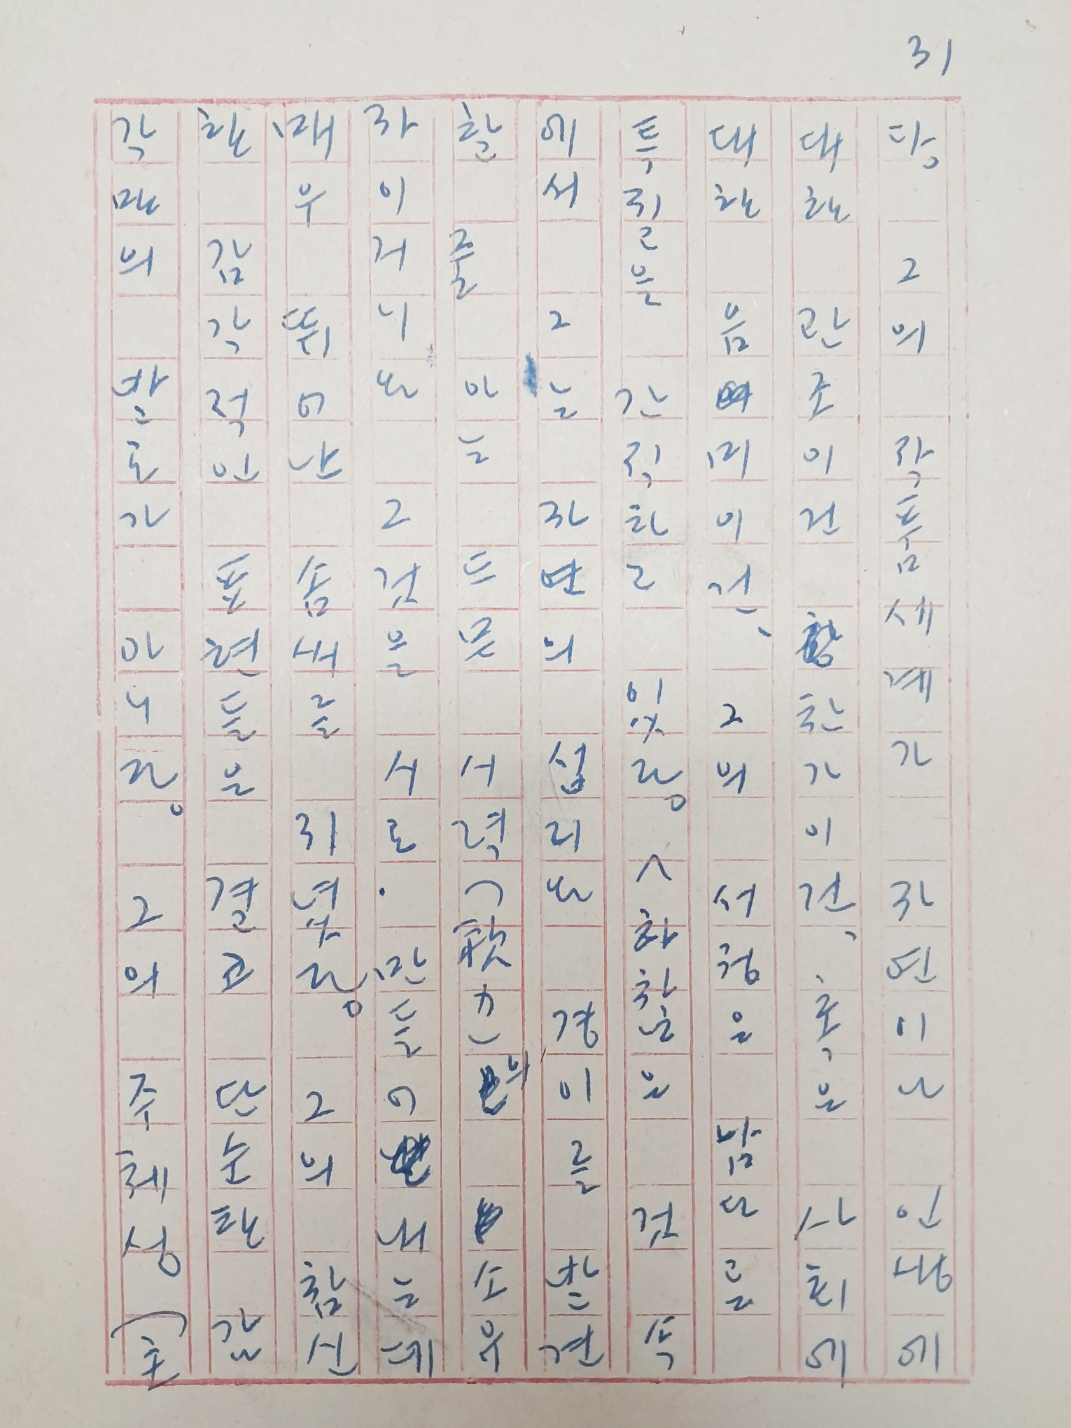 31
다. 그의 작품세계가 자연이나 인생에
대한 관조이건 찬가이건, 혹은 사회에
대한 음미이건, 그의 서정은 남다른
특질을 간직하고 있다. 하찮은 것 속
에서 그는 자연의 섭리와 경이를 발견
할 줄 아는 드문 서력(의 소유
자이거니와 그것을 서로 만들어 내는데
매우 뛰어난 솜씨를 지녔다. 그의 참신
한 감각적인 표현들은 결코 단순한 감
각만의 반로가 아니다. 그의 주체성(主